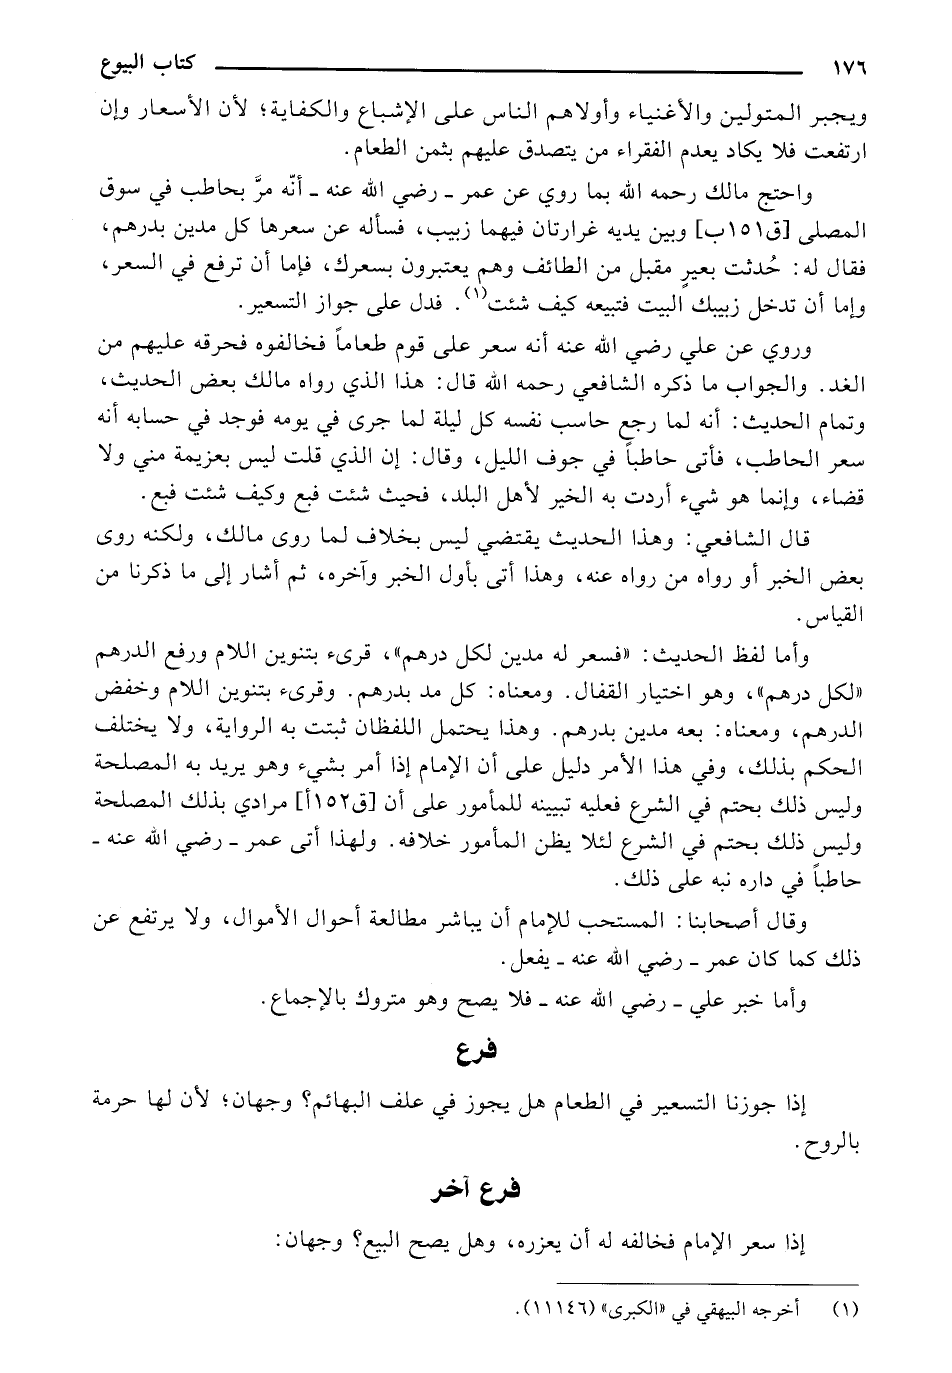 ١٧٦ كتاب البيوع
ويجبر المتولين والأغنياء وأولاهم الناس على الإشباع والكفاية؛ لأن الأسعار وإن
ارتفعت فلا يكاد يعدم الفقراء من يتصدق عليهم بثمن الطعام.
واحتج مالك رحمه الله بما روي عن عمر ـ رضي الله عنه ـ أنّه مرَّ بحاطب في سوق
المصلى [ق١٥١ب] وبين يديه غرارتان فيهما زبيب، فسأله عن سعرها كل مدين بدرهم،
فقال له: حُدثت بعيرٍ مقبل من الطائف وهم يعتبرون بسعرك، فإما أن ترفع في السعر،
وإما أن تدخل زبيبك البيت فتبيعه كيف شئت(١). فدل على جواز التسعير.
وروي عن علي رضي الله عنه أنه سعر على قوم طعاماً فخالفوه فحرقه عليهم من
الغد. والجواب ما ذكره الشافعي رحمه الله قال: هذا الذي رواه مالك بعض الحديث،
وتمام الحديث: أنه لما رجع حاسب نفسه كل ليلة لما جرى في يومه فوجد في حسابه أنه
سعر الحاطب، فأتى حاطباً في جوف الليل، وقال: إن الذي قلت ليس بعزيمة مني ولا
قضاء، وإنما هو شيء أردت به الخير لأهل البلد، فحيث شئت فبع وكيف شئت فبع.
قال الشافعي: وهذا الحديث يقتضي ليس بخلاف لما روى مالك، ولكنه روى
بعض الخبر أو رواه من رواه عنه، وهذا أتى بأول الخبر وآخره، ثم أشار إلى ما ذكرنا من
القياس.
وأما لفظ الحديث: «فسعر له مدين لكل درهم»، قرىء بتنوين اللام ورفع الدرهم
«لكل درهم»، وهو اختيار القفال. ومعناه: كل مد بدرهم. وقرىء بتنوين اللام وخفض
الدرهم، ومعناه: بعه مدين بدرهم. وهذا يحتمل اللفظان ثبتت به الرواية، ولا يختلف
الحكم بذلك، وفي هذا الأمر دليل على أن الإمام إذا أمر بشيء وهو يريد به المصلحة
وليس ذلك بحتم في الشرع فعليه تبيينه للمأمور على أن [ق١٥٢أ] مرادي بذلك المصلحة
وليس ذلك بحتم في الشرع لئلا يظن المأمور خلافه. ولهذا أتى عمر ـ رضي الله عنه ـ
حاطباً في داره نبه على ذلك.
وقال أصحابنا: المستحب للإمام أن يباشر مطالعة أحوال الأموال، ولا يرتفع عن
ذلك كما كان عمر ـ رضي الله عنه ـ يفعل.
وأما خبر علي ـ رضي الله عنه ـ فلا يصح وهو متروك بالإجماع.
فرع
إذا جوزنا التسعير في الطعام هل يجوز في علف البهائم؟ وجهان؛ لأن لها حرمة
بالروح.
فرع آخر
إذا سعر الإمام فخالفه له أن يعزره، وهل يصح البيع؟ وجهان:
(١) أخرجه البيهقي في «الكبرى» (١١١٤٦).